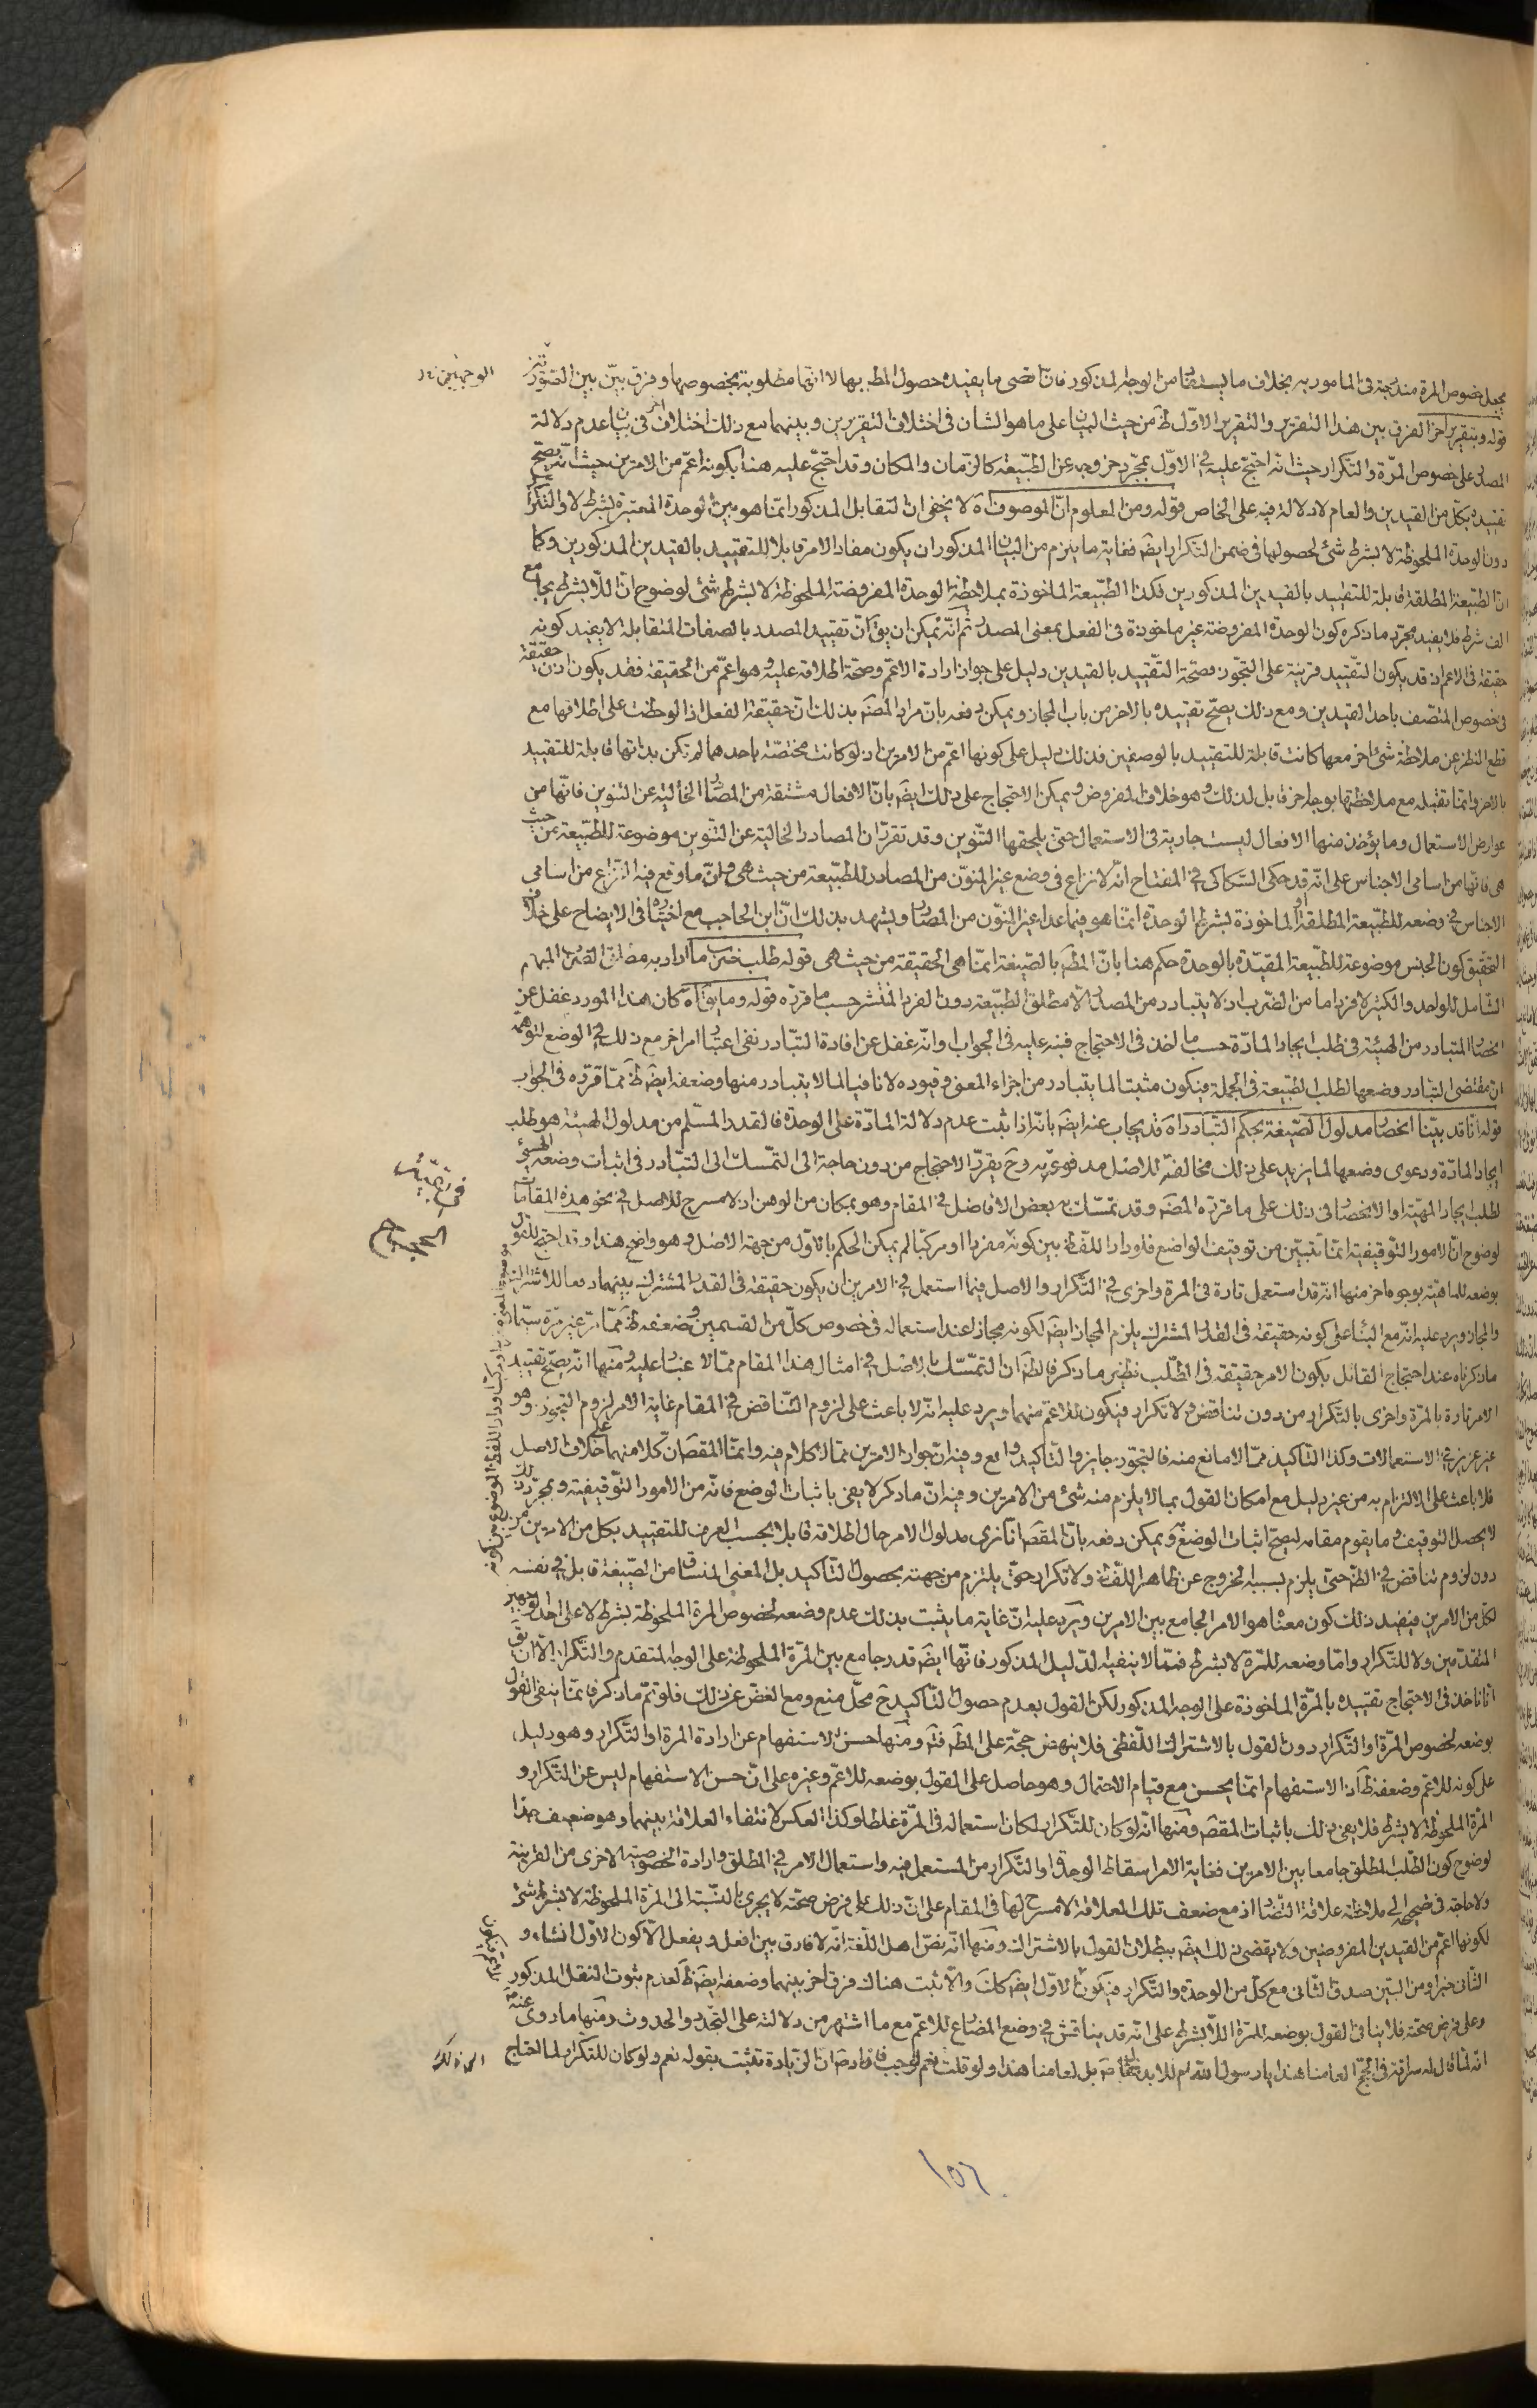 يجعل خصوص المرة مندرجة فى المامور به بخلاف ما يستفاد من الوجه المذكور فان اقصى ما يفيده حصول المط بها لا انها مطلوبة بخصوصها وفرق بيّن بين الصورتين
قوله وبتقرير اخر الفرق بين هذا التقرير والتقرير الاوّل ظ من حيث البيان على ما هو الشان فى اختلاف التقريرين وبينهما مع ذلك اختلاف اخر فى بيان عدم دلالة
المصدر على خصوص المرّة والتكرار حيث انه احتج عليه فى الاوّل بمجرّد خروجه عن الطبيعة كالزمان والمكان وقد احتجّ عليه هنا بكونه اعمّ من الامرين حيث انه يصحّ
تقييده بكلّ من القيدين والعام لا دلالة فيه على الخاص قوله ومن المعلوم انّ الموصوف اه لا يخفى ان التقابل المذكور انما هو بين الوحدة المعتبرة بشرط لا والتكرار
دون الوحدة الملحوظة لا بشرط شئ لحصولها فى ضمن التكرار ايضَ فغاية ما يلزم من البيان المذكور ان يكون مفاد الامر قابلا للتقييد بالقيدين المذكورين وكما
انّ الطبيعة المطلقة قابلة للتقييد بالقيدين المذكورين فكذا الطبيعة الماخوذة بملاحظة الوحدة المفروضة الملحوظة لا بشرط شئ لوضوح انّ اللّابشرط يجامع
الف شرط فلا يفيد مجرّد ما ذكره كون الوحدة المفروضة غير ماخوذة فى الفعل بمعنى المصدر ثم انّه يمكن ان يقَ انّ تقييد المصدر بالصفات المتقابلة لا يفيد كونه
حقيقة فى الاعم اذ قد يكون التقييد قرينة على التجوّز فصحّة التّقييد بالقيدين دليل على جواز ارادة الاعمّ وصحّة اطلاقه عليه وهو اعمّ من الحقيقة فقد يكون اذن حقيقة
فى خصوص المتّصف باحد القيدين ومع ذلك يصحّ تقييده بالاخر من باب المجاز ويمكن دفعه بانّ مراد المصَنّف بذلك انّ حقيقة الفعل اذا لوحظت على اطلاقها مع
قطع النظر عن ملاحظة شئ اخر معها كانت قابلة للتقييد بالوصفين فذلك دليل على كونها اعمّ من الامرين اذ لو كانت مختصّة باحدهما لم تكن بذاتها قابلة للتقييد
بالاخر وانّما تقبله مع ملاحظتها بوجه اخر قابل لذلك وهو خلاف المفروض ويمكن الاحتجاج على ذلك ايضَ بانّ الافعال مشتقة من المصادر الخالية عن التنوين فانّها من
عوارض الاستعمال وما يؤخذ منها الافعال ليست جارية فى الاستعمال حتى يلحقها التّنوين وقد تقرّر ان المصادر الخالية عن التّنوين موضوعة للطّبيعة من حيث
هى فانّها من اسامى الاجناس على انّه قد حكى السّكاكى فى المفتاح انّه لا نزاع فى وضع غير المنوّن من المصادر للطّبيعة من حيث هى وانّ ما وقع فيه النّزاع من اسامى
الاجناس فى وضعه للطّبيعة المطلقة او الماخوذة بشرط الوحدة انّما هو فيما عدا غير المنوّن من المصادر ويشهد بذلك انّ ابن الحاجب مع اختياره فى الايضاح على خلاف
التحقيق كون الجنس موضوعة للطّبيعة المقيّدة بالوحدة حكم هنا بانّ المطَ بالصّيغة انّما هى الحقيقة من حيث هى قوله طلب ضرب ما اراد به مطلق الضّرب المبهم
الشّامل للواحد والكثير لا فردا ما من الضّرب اذ لا يتبادر من المصدر الّا مطلق الطّبيعة دون الفرد المنتشر حسب ما قرّره قوله وما يقَ اه كان هذا المورد غفل عن
انحصار المتبادر من الهيئة فى طلب ايجاد المادّة حسب ما اخذ فى الاحتجاج فنبه عليه فى الجواب وانّه غفل عن افادة التّبادر نفى اعتبار امر اخر مع ذلك فى الوضع لتوهّمه
انّ مقتضى التبادر وضعها لطلب الطّبيعة فى الجملة فيكون مثبتا لما يتبادر من اجزاء المعنى وقيوده لا نافيا لما لا يتبادر منها وضعفه ايضَ ظ ممّا قرّره فى الجواب
قوله انّا قد بيّنا انحصار مدلول الصّيغة بحكم التّبادر اه قد يجاب عنه ايضَ بانّه اذا ثبت عدم دلالة المادّة على الوحدة فالقدر المسلّم من مدلول الهيئة هو طلب
ايجاد المادّة ودعوى وضعها لما يزيد على ذلك مخالفة للاصل مدفوعة به وحَ يقرّر الاحتجاج من دون حاجة الى التمسّك الى التّبادر فى اثبات وضعه
لطلب ايجاد المهيّة او الانحصار فى ذلك على ما قرّره المصَ وقد تمسّك به بعض الافاضل فى المقام وهو بمكان من الوهن اذ لا مسرح للاصل فى نحو هذه المقامات
لوضوح انّ الامور التّوقيفيّة انّما تتبيّن من توقيف الواضع فلو دار اللّفظ بين كونه مفردا او مركبا لم يمكن الحكم بالاوّل من جهة الاصل وهو واضح هذا وقد احتج للقول
بوضعه للماهيّة بوجوه اخر منها انّه قد استعمل تارة فى المرة واخرى فى التّكرار والاصل فيما استعمل فى الامرين ان يكون حقيقة فى القدر المشترك بينهما دفعا للاشتراك
والمجاز ويرد عليه انّه مع البناء على كونه حقيقة فى القدر المشترك يلزم المجاز ايضَ لكونه مجازا عند استعماله فى خصوص كلّ من القسمين وضعفه ظ ممّا مرّ غير مرّة سيّما
ما ذكرناه عند احتجاج القائل بكون الامر حقيقة فى الطّلب نظير ما ذكر فالظَ ان التّمسّك بالاصل فى امثال هذا المقام ممّا لا غبار عليه ومنها انّه يصحّ تقييد
الامر تارة بالمرّة واخرى بالتّكرار من دون تناقض ولا تكرار فيكون للاعمّ منهما ويرد عليه انّه لا باعث على لزوم التّناقض فى المقام غاية الامر لزوم التجوّز وهو
غير عزيز فى الاستعمالات وكذا التّاكيد ممّا لا مانع منه فالتجوّز جايز والتّاكيد واقع وفيه انّ جواز الامرين ممّا لا كلام فيه وانّما المقصَ انّ كلا منهما على خلاف الاصل
فلا باعث على الالتزام به من غير دليل مع امكان القول بما لا يلزم منه شئ من الامرين وفيه انّ ما ذكر لا يفى باثبات الوضع فانّه من الامور التّوقيفيّة وبمجرّد ذلك
لا يحصل التوقيف وما يقوم مقامه ليصحّ اثبات الوضع به ويمكن دفعه بانّ المقصَ انّا نرى مدلول الامر حال اطلاقه قابلا بحسب العرف للتقييد بكل من الامرين من
دون لزوم تناقض فى الظّ حتى يلزم بسببه الخروج عن ظاهر اللّفظ ولا تكرار حتّى يلتزم من جهته بحصول التّاكيد بل المعنى المنساق من الصّيغة قابل فى نفسه
لكلّ من الامرين فيفيد ذلك كون معناه هو الامر الجامع بين الامرين ويَرد عليه انّ غاية ما يثبت بذلك عدم وضعه لخصوص المرة الملحوظة بشرط لا على احد الوجهين
المتقدّمين ولا للتكرار وامّا وضعه للمرّة لا بشرط فممّا لا ينفيه الدّليل المذكور فانّها ايضَ قدر جامع بين المرّة الملحوظة على الوجه المتقدم والتّكرار الّا ان يقَ
انّا ناخذ فى الاحتجاج تقييده بالمرّة الماخوذة على الوجه المذكور لكن القول بعدم حصول التّاكيد حَ محلّ منع ومع الغضّ عن ذلك فلو تمّ ما ذكر فانّما ينفى القول
بوضعه لخصوص المرّة او التّكرار دون القول بالاشتراك اللّفظى فلا ينهض حجّة على المطَ فتمَ ومنها حسن الاستفهام عن ارادة المرة او التّكرار وهو دليل
على كونه للاعمّ وضعفه ظَ اذ الاستفهام انّما يحسن مع قيام الاحتمال وهو حاصل على القول بوضعه للاعمّ وغيره على انّ حسن الاستفهام ليس عن التّكرار و
المرّة الملحوظة لا بشرط فلا يفى ذلك باثبات المقصَ ومنها انّه لو كان للتّكرار لكان استعماله فى المرّة غلطا وكذا العكس لانتفاء العلاقة بينهما وهو ضعيف جدا
لوضوح كون الطّلب المطلق جامعا بين الامرين فغاية الامر اسقاط الوحدة او التّكرار من المستعمل فيه واستعمال الامر فى المطلق وارادة الخصوصية الاخرى من القرينة
ولا حاجة فى تصحيحه الى ملاحظة علاقة التّضاد اذ مع ضعف تلك العلاقة لا مسرح لها فى المقام على انّ ذلك على فرض صحّته لا يجرى بالنّسبة الى المرّة الملحوظة لا بشرط شئ
لكونها اعمّ من القيدين المفروضين ولا يقضى ذلك ايضَ ببطلان القول بالاشتراك ومنها انّه نصّ اهل اللّغة انّه لا فارق بين افعل ويفعل الّا كون الاوّل انشاء و
الثّانى خبرا ومن البيّن صدق الثّانى مع كلّ من الوحدة والتّكرار فيكون الاوّل ايضَ كلكَ والّا ثبت هناك فرق اخر بينهما وضعفه ايضَ ظَ لعدم ثبوت النقل المذكور
وعلى فرض صحّته فلا ينافى القول بوضعه للمرّة اللّابشرط على انّه قد يناقش فى وضع المضارع للاعمّ مع ما اشتهر من دلالته على التّجدّد والحدوث ومنها ما روى عنه
انّه لمّا قال له سراقة فى الحجّ العامنا هذا يا رسول اللّه ام للابد فقال صَ بل لعامنا هذا ولو قلت نعم لوجب فافاد صَ انّ الزيادة تثبت بقوله نعم ولو كان للتّكرار لما احتاج
فى تتمّة
الحجج
١٥٦